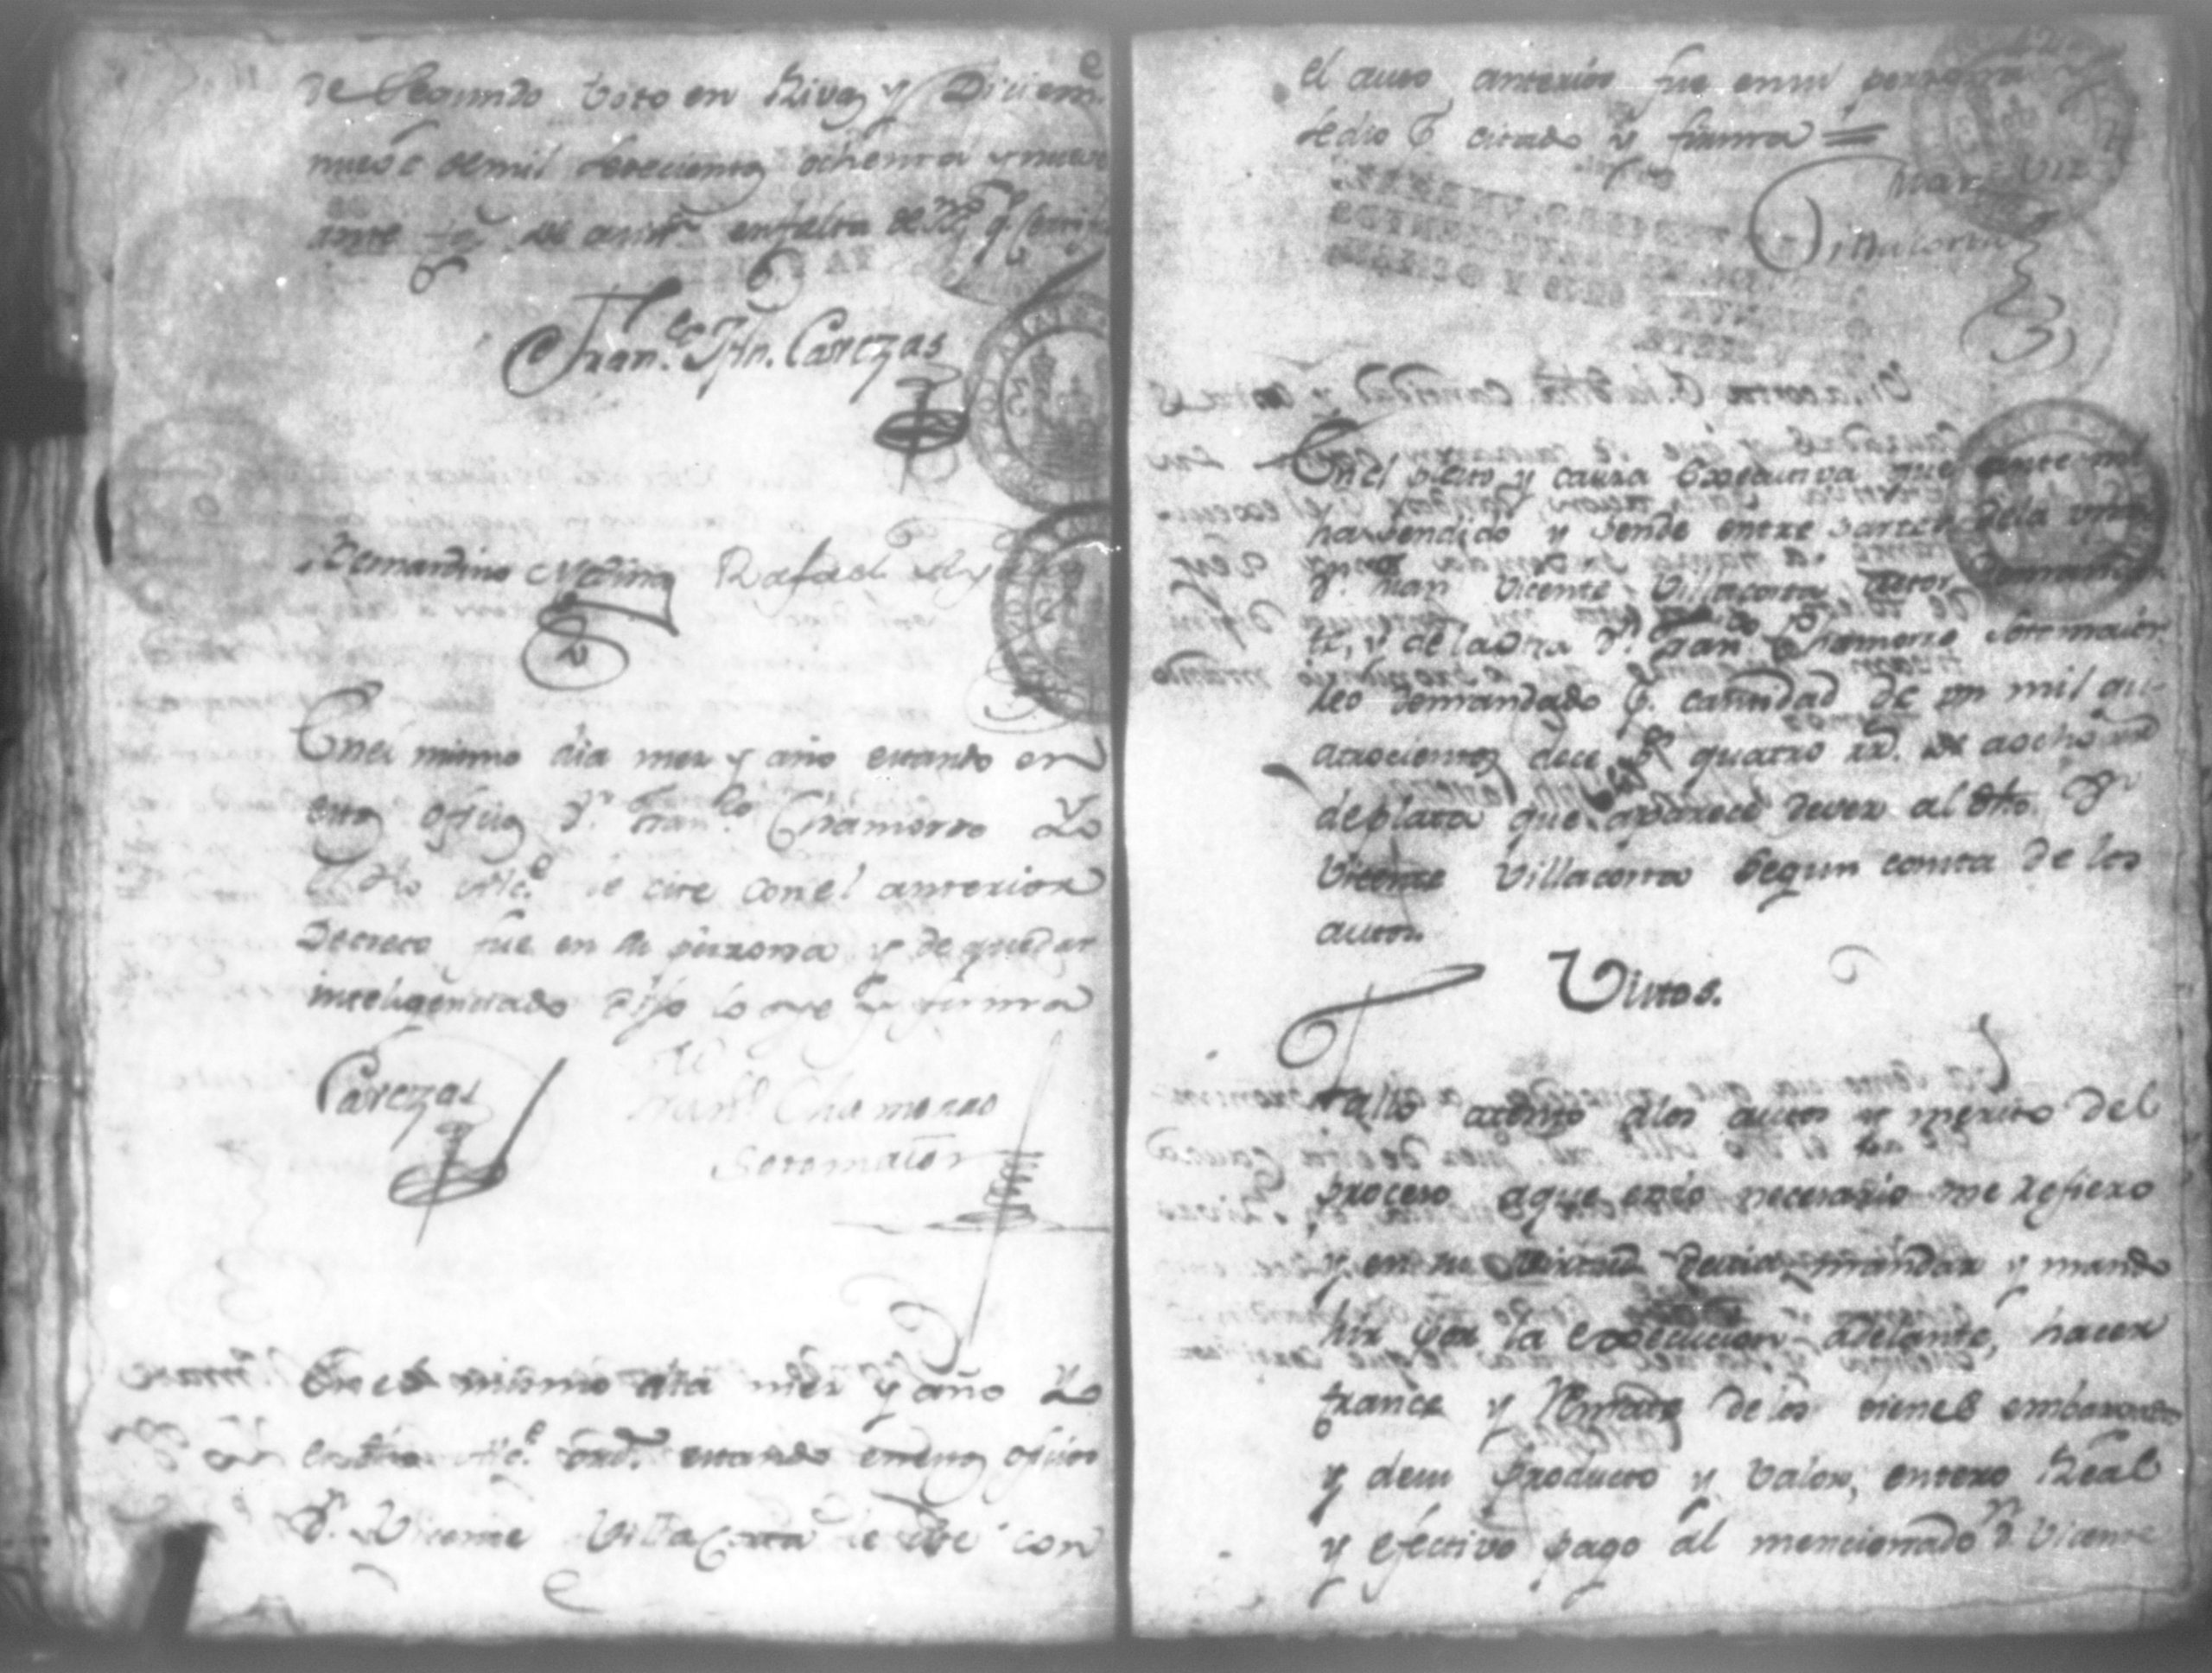 de Segundo voto en Rivas y Diciem.e
nueve de mil setecientos ochenta y nueve
ante en falta de
Fran.co Jph. Carezas
Bernardino Medina Rafael
En el mismo dia mes y año estando en
este oficio D.n Fran.co Chamorro Yo
el dho Alc.e le cite con el anterior
Decreto fue en su persona y de quedar
inteligenciado dijo lo oye y firma
Carezas Fran.co Chamorro
Sotomaior
En el mismo dia mes y año Yo
el dho Alc.e ord.o estando en este oficio
D.n Vicente Villacorta le cite con
el auto anterior fue en su persona
se dio p. citado y firma
Man.l Viz.te
Villacorta
En el pleito y causa Executiva que ante mi
ha pendido y pende entre partes de la una
D.n Man Vicente Villacorta Actor demandan
te, y de la otra D.n Fran.co Chamorro Sotomaior
Reo demandado p. cantidad de un mil qu-
atrocientos dece p.s quatro rr.s de a ocho
de plata que aparece dever al dho. D.n
Vicente Villacorta Segun consta de los
autos.
Vistos.
Fallo atento a los autos y merito del
proceso a que en lo necesario me refiero
y en su virtud devia mandar y mando
hir por la execucion adelante, hacer
trance y Remate de los vienes embargados
y de su producto y valor, entero Real
y efectivo pago al mencionado D.n Vicente